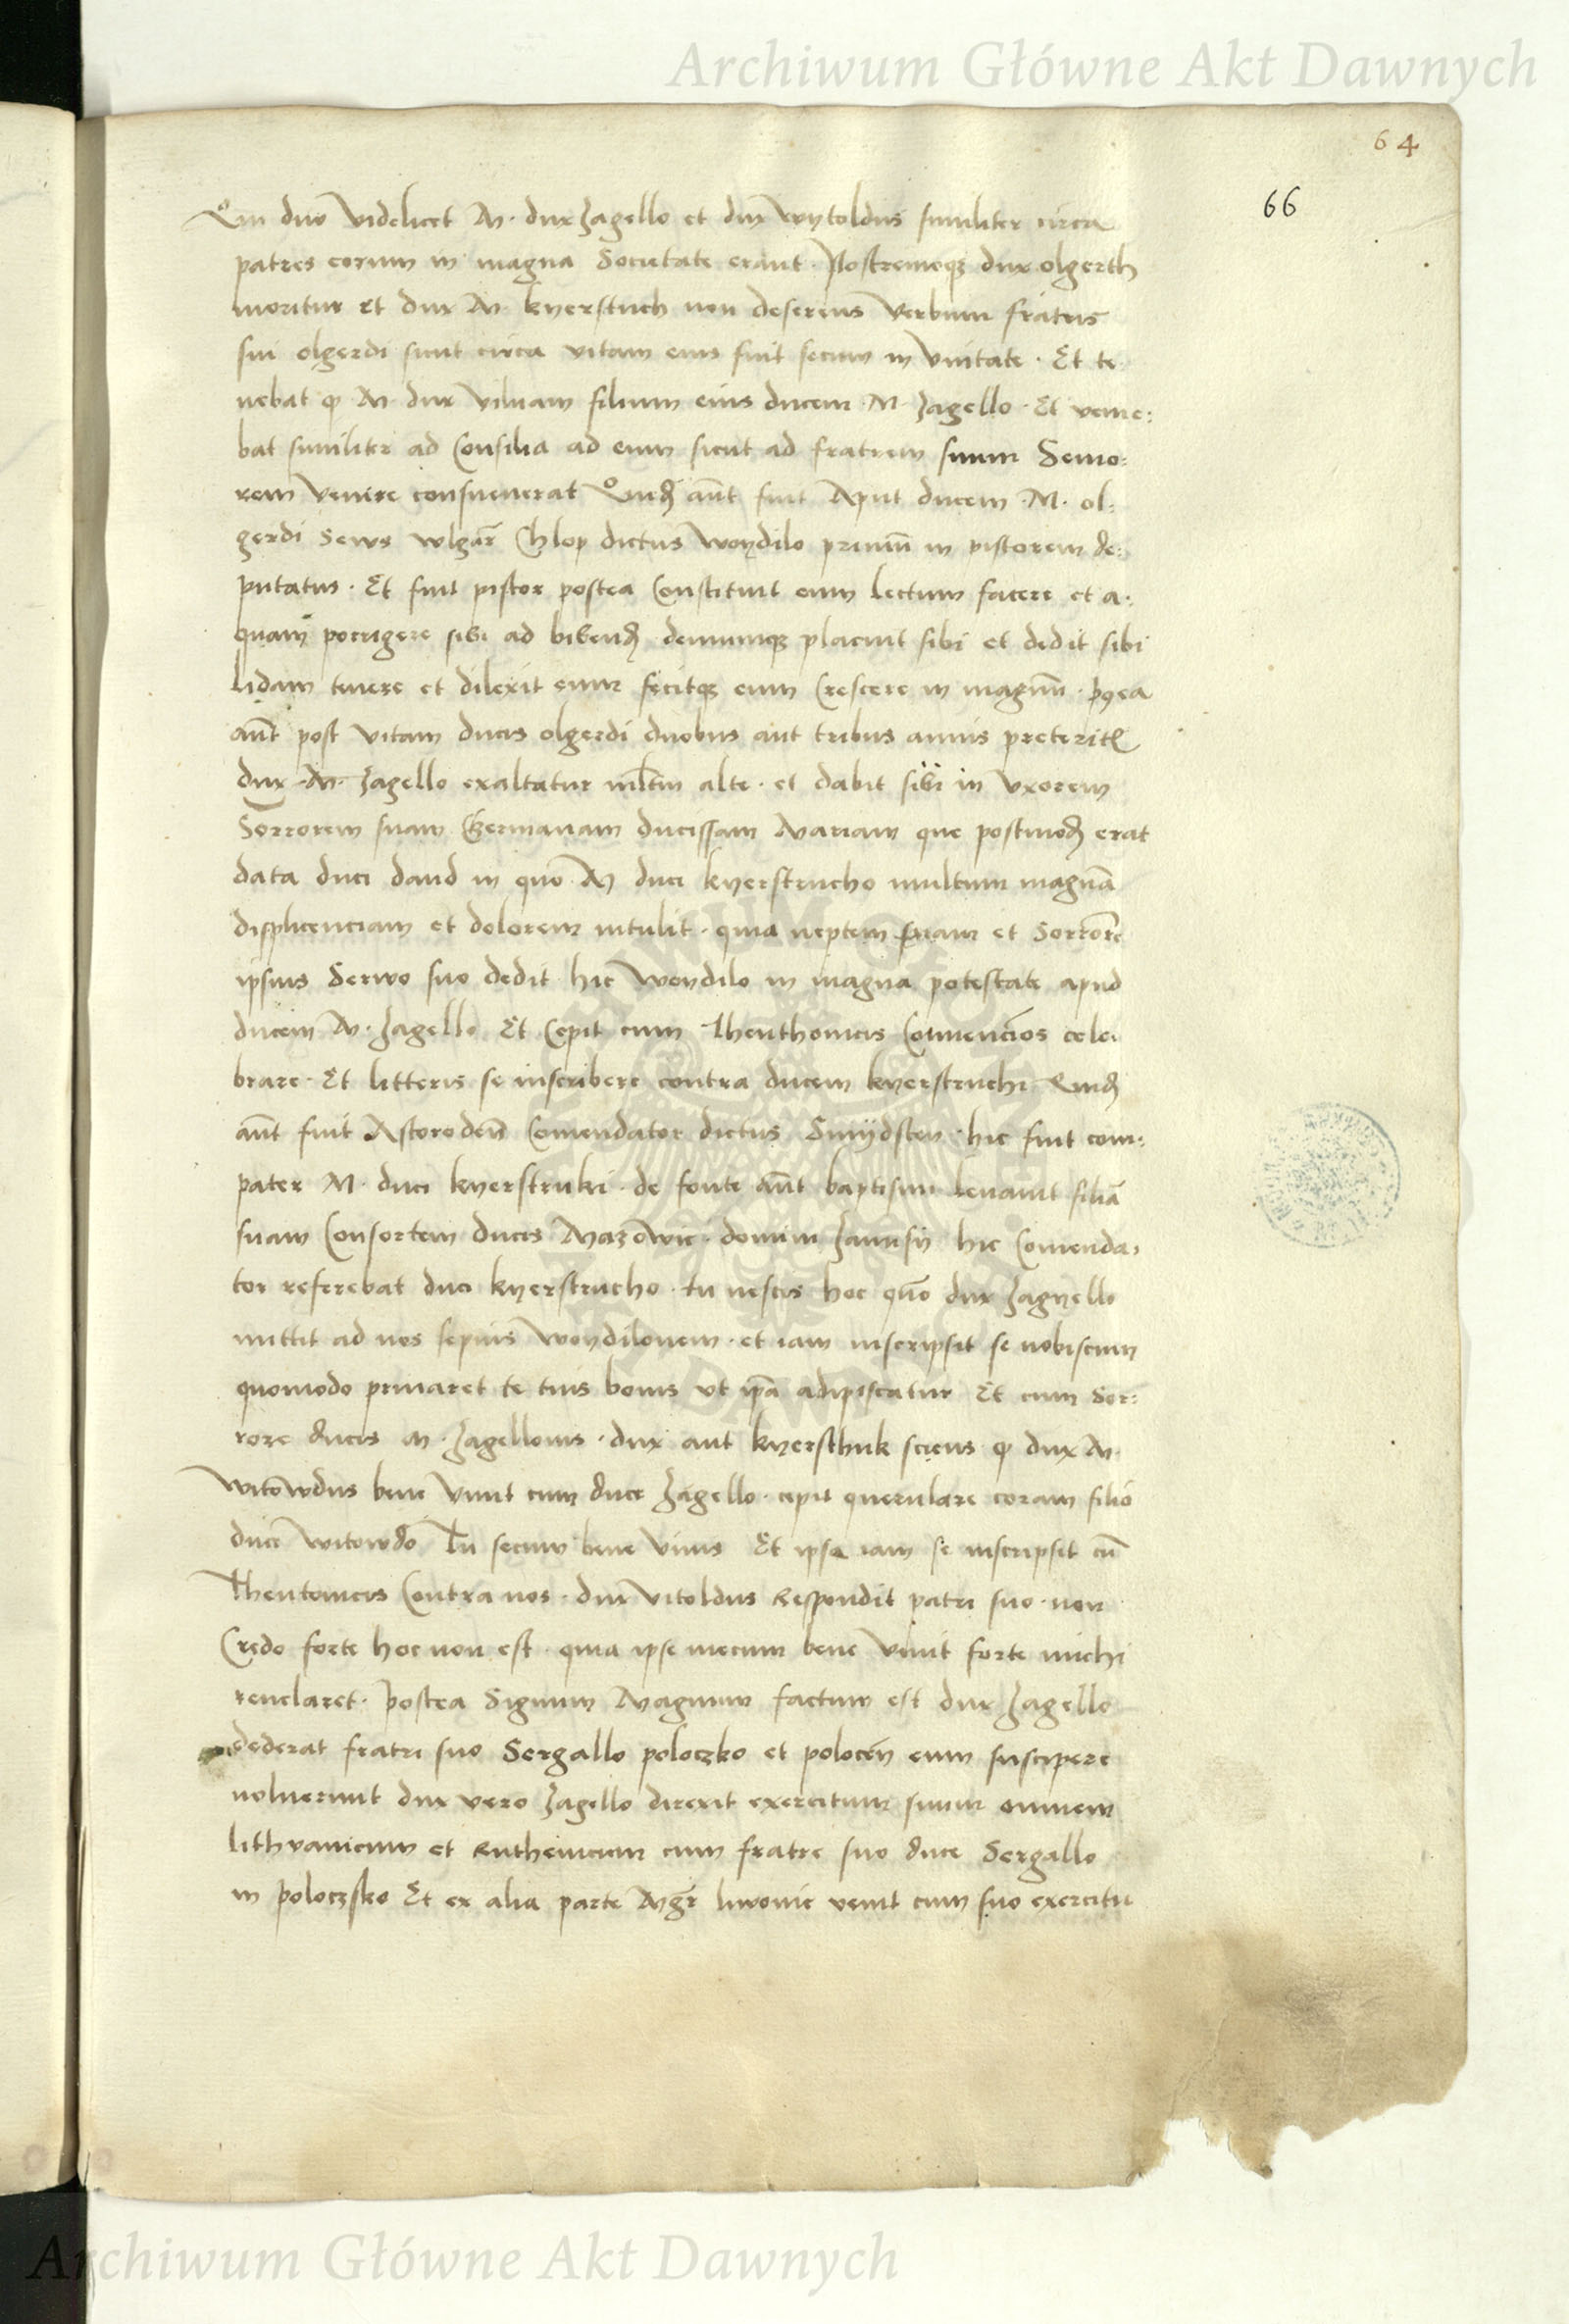 Archiwum Główne Akt Dawnych
64
66
Qui duo videlicet M. dux Jagello et dux wytoldus similiter circa
patres eorum in magna Societate erant. Postremoq3 dux olgerth
moritur et dux M. kyerstuch non deserens verbum fratris
sui olgerdi sicut circa vitam eius fuit secum in vnitate. Et te
nebat q M. dux vilnam filium eius ducem M. Jagello. Et venie:
bat similiter ad Consilia ad eum sicut ad fratrem suum Senio:
rem venire consueuerat Quidā aūt fuit Aput ducem M. ol:
gerdi Serws wlgār Chlop dictus woydilo primū in pistorem de:
putatus. Et fuit pistor postea Constituit eum lectum facere et a:
quam porrigere sibi ad bibendū demumq3 placuit sibi et dedit sibi
lidam tenere et dilexit eum fecitq3 eum Crescere in magnū. p9ea
aūt post vitam ducis olgerdi duobus aut tribus annis preteritis
dux M. Jagello exaltatur mltm alte. et dabit sibi in vxorem
Sorrorem suam Germanam ducissam Mariam que postmodū erat
data duci dauid in quo M duci kyerstucho multum magnā
displicenciam et dolorem intulit. quia neptem suam et Sorrorē
ipsius Serwo suo dedit hic woydilo in magna potestate apud
ducem M. Jagello Et Cepit cum Theuthonicis Conuencōes cele:
brare. Et litteris se inscribere contra ducem kyerstuchi Quidā
aūt fuit Astorodeñ Comendator dictus Sunydsten. hic fuit com:
pater M. duci kyerstuki. de fonte aūt baptismi leuauit filiā
suam Consortem ducis Mazowie. domini Janusij hic Comenda:
tor referebat duci kyerstucho. tu nescis hoc quō dux Jagyello
mittit ad nos sepius woydilonem. et iam inscripsit se nobiscum
quomodo priuaret te tuis bonis vt ipā adipiscatur Et cum Sor:
rore ducis M. Jagellonis. dux aut kyersthuk sciens q dux M.
witowdus bene viuit cum duce Jagello. cepit querulare coram filio
duci witowdo Tu secum bene viuis Et ipse iam se inscripsit cū
Theutonicis Contra nos. dux vitoldus Respondit patri suo. non
Credo forte hoc non est. quia ipse mecum bene viuit forte michi
reuelaret. postea Signum Magnum factum est dux Jagello
dederat fratri suo Sergallo poloczko et poloceñ eum suscipere
noluerunt dux vero Jagello direxit exercitum suum omnem
lithvanicum et Ruthenicum cum fratre suo duce Sergallo
in poloczsko Et ex alia parte Mgr̄ liwonie venit cum suo exercitu
Archiwum Główne Akt Dawnych